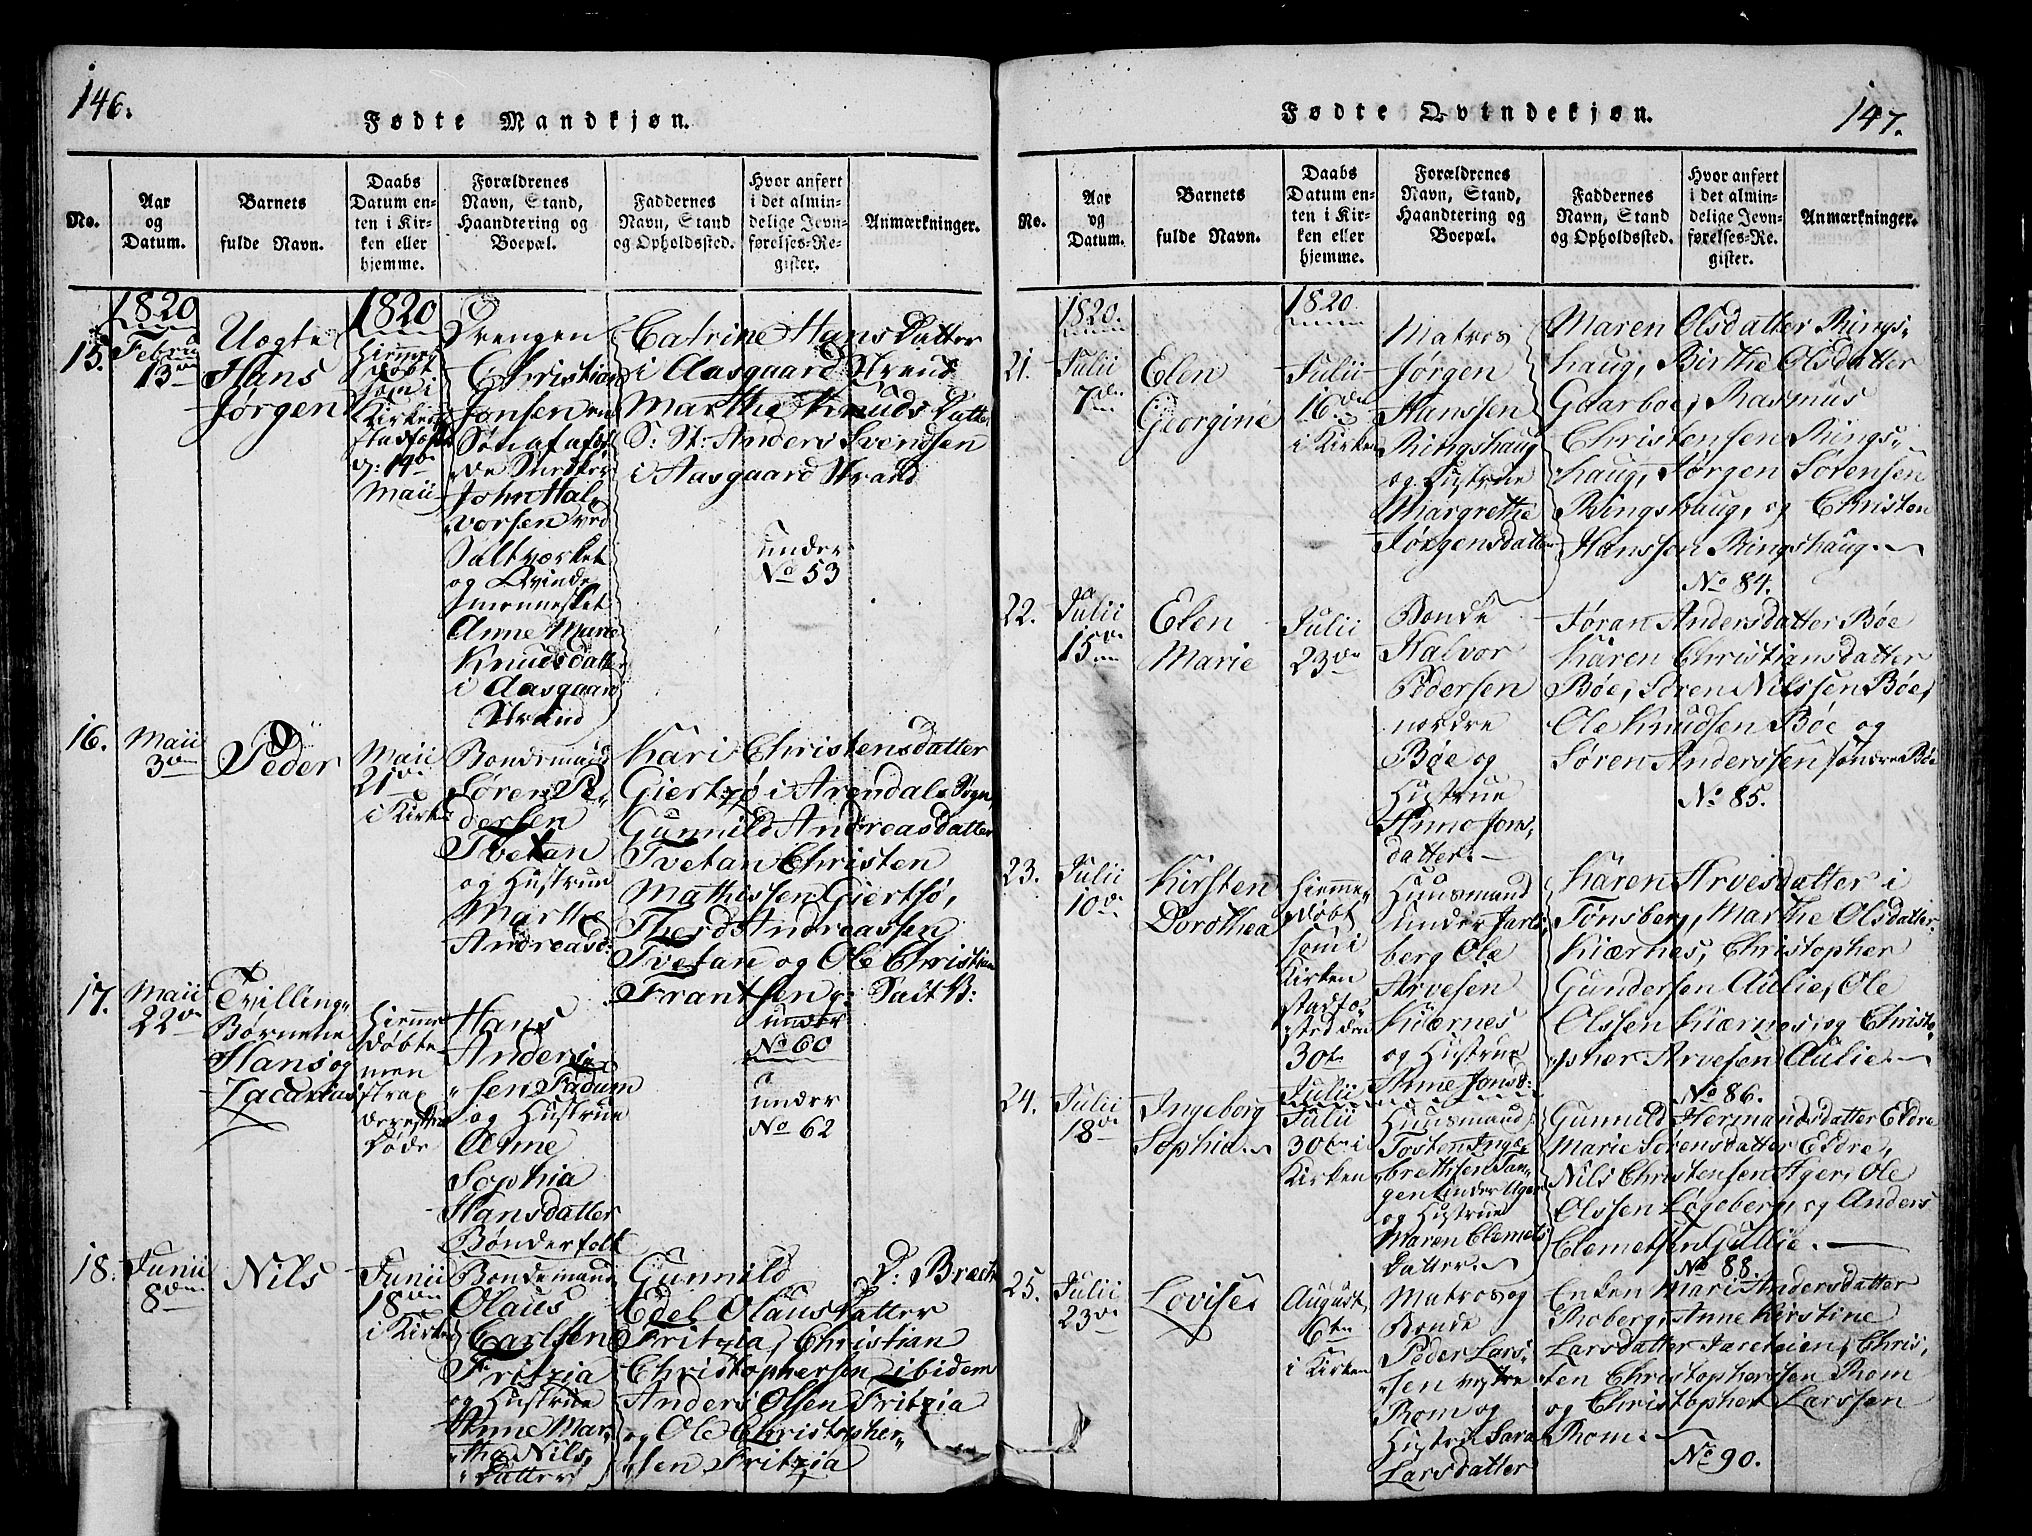 146.
Fødte Mandkjøn.
No.
Aar
og
Datum.
Barnets
fulde Navn.
Daabs
Datum en-
ten i Kir-
ken eller
hjemme.
Forældrenes
Navn, Stand,
Haandtering og
Boepæl.
Faddernes
Navn, Stand
og Opholdssted.
Hvor anført
i det almin-
delige Jevn-
førelses-Re-
gister.
Anmærkninger.
15.
1820
Febru
13de
Uægte
Hans
Jørgen
1820
Hiemme
døbt
som i
Kirken
stadfæst
d: 14de
Maii
Drengen
Christian
Jonsen en
Søn af
John Hal,,
vorsen ved
Saltværket
og Qvinde
mennesket
Anne Marie
Knudsdatter
i Aasgaard
Strand
Catrine Hans Datter
i Aasgaard Strand
Marthe Knuds Datter
S: St: Anders Svendsen
i Aasgaard Strand
under
No 53
16.
Maii
3de
Peder
Maii
21de
i Kirken
Bondemand
Søren Pe,,
dersen
Tvetan
og Hustrue
Marthe
Andreasd:
Kari Christensdatter
Giertsø i Arendals Sogn,
Gunnild Andreasdatter
Tvetan Christen
Mathissen Giertsø,
Andreassen
Tvetan og Ole Christian
Frantsen p: Salt V:
under
No 60
17.
Maii
22de
Tvilling,,
Børnene
Hans og
Zacarias
Hiemme
døbte
men
strax
derefter
døde
Hans
Anders,,
sen Fadum
og Hustrue
Anne
Sophia
Hansdatter
Bønderfolk
under
No 62
18.
Junii
8de
Nils
Junii
18de
i Kirken
Bondemand
Olaus
Carlsen
Fritzia
og Hustrue
Anne Mar,,
tha Nils,,
Datter
Gunnild
Edel Olaus Datter
Fritzia, Christian
Christophersen ibidem
Anders Olsen Fritzia
og Ole Christopher,,
sen Fritzia
147.
Fødte Qvindekjøn.
No.
Aar
og
Datum.
Barnets
fulde Navn.
Daabs
Datum en-
ten i Kir-
ken eller
hjemme.
Forældrenes
Navn, Stand,
Haandtering og
Boepæl.
Faddernes
Navn, Stand
og Opholdssted.
Hvor anført
i det almin-
delige Jevn-
førelses-Re-
gister.
Anmærkninger.
21.
1820.
Julii
7de
Elen
Georgine
1820
Julii
16de
i Kirken
Matros
Jørgen
Hanssen
Ringshaug
og Hustrue
Margrethe
Jørgensdatter
Maren Olsdatter Rings,,
haug, Birthe Olsdatter
Gaarboe, Rasmus
Christensen Rings,,
haug, Jørgen Sørensen
Ringshaug, og Christen
Hanssen Ringshaug.
No 84.
22.
Julii
15de
Elen
Marie
Julii
23de
Bonde
Halvor
Pedersen
nordre
Bøe og
Hustrue
Anne Jons,,
datter.
Jøran Andersdatter Bøe
Karen Christiansdatter
Bøe, Søren Nilssen Bøe,
Ole Knudsen Bøe og
Søren Anderssen søndre Bøe
No 85.
23.
Julii
10de
Kirsten
Dorothea
Hiemme,,
døbt
som i
Kirken
stadfæ,,
sted den
30te
Julii
Huusmand
under Jarls,,
berg Ole
Arvesen
Kiærnes
og Hustrue
Anne Jonsd:
Karen Arvesdatter i
Tønsberg, Marthe Olsdatter
Kiærnes, Christopher
Gundersen Aulie, Ole
Olssen Kiærnes, og Christo,,
pher Arvesen Aulie.
No 86.
24.
Julii
18de
Ingeborg
Sophia
Julii
30te i
Kirken
Huusmand
Tosten Inge,,
brethsen Tan,,
gen under Ager
og Hustrue
Maren Clemets
Datter
Gunnild Hermandsdatter Eldre
Marie Sørensdatter Eldre,
Nils Christensen Ager, Ole
Olssen Løgeberg, og Anders
Clemetsen Gullie.
No 88.
25.
Julii
23de
Lovise
August
6te
i Kirken
Matros og
Bonde
Peder Lars,,
sen vestre
Rom og
Hustrue Sara
Larsdatter
Enken Mari Andersdatter
Roberg, Anne Kirstine
Larsdatter Jareteien, Chris,,
ten Christopherssen Rom
og Christopher Larssen
Rom.
No 90.